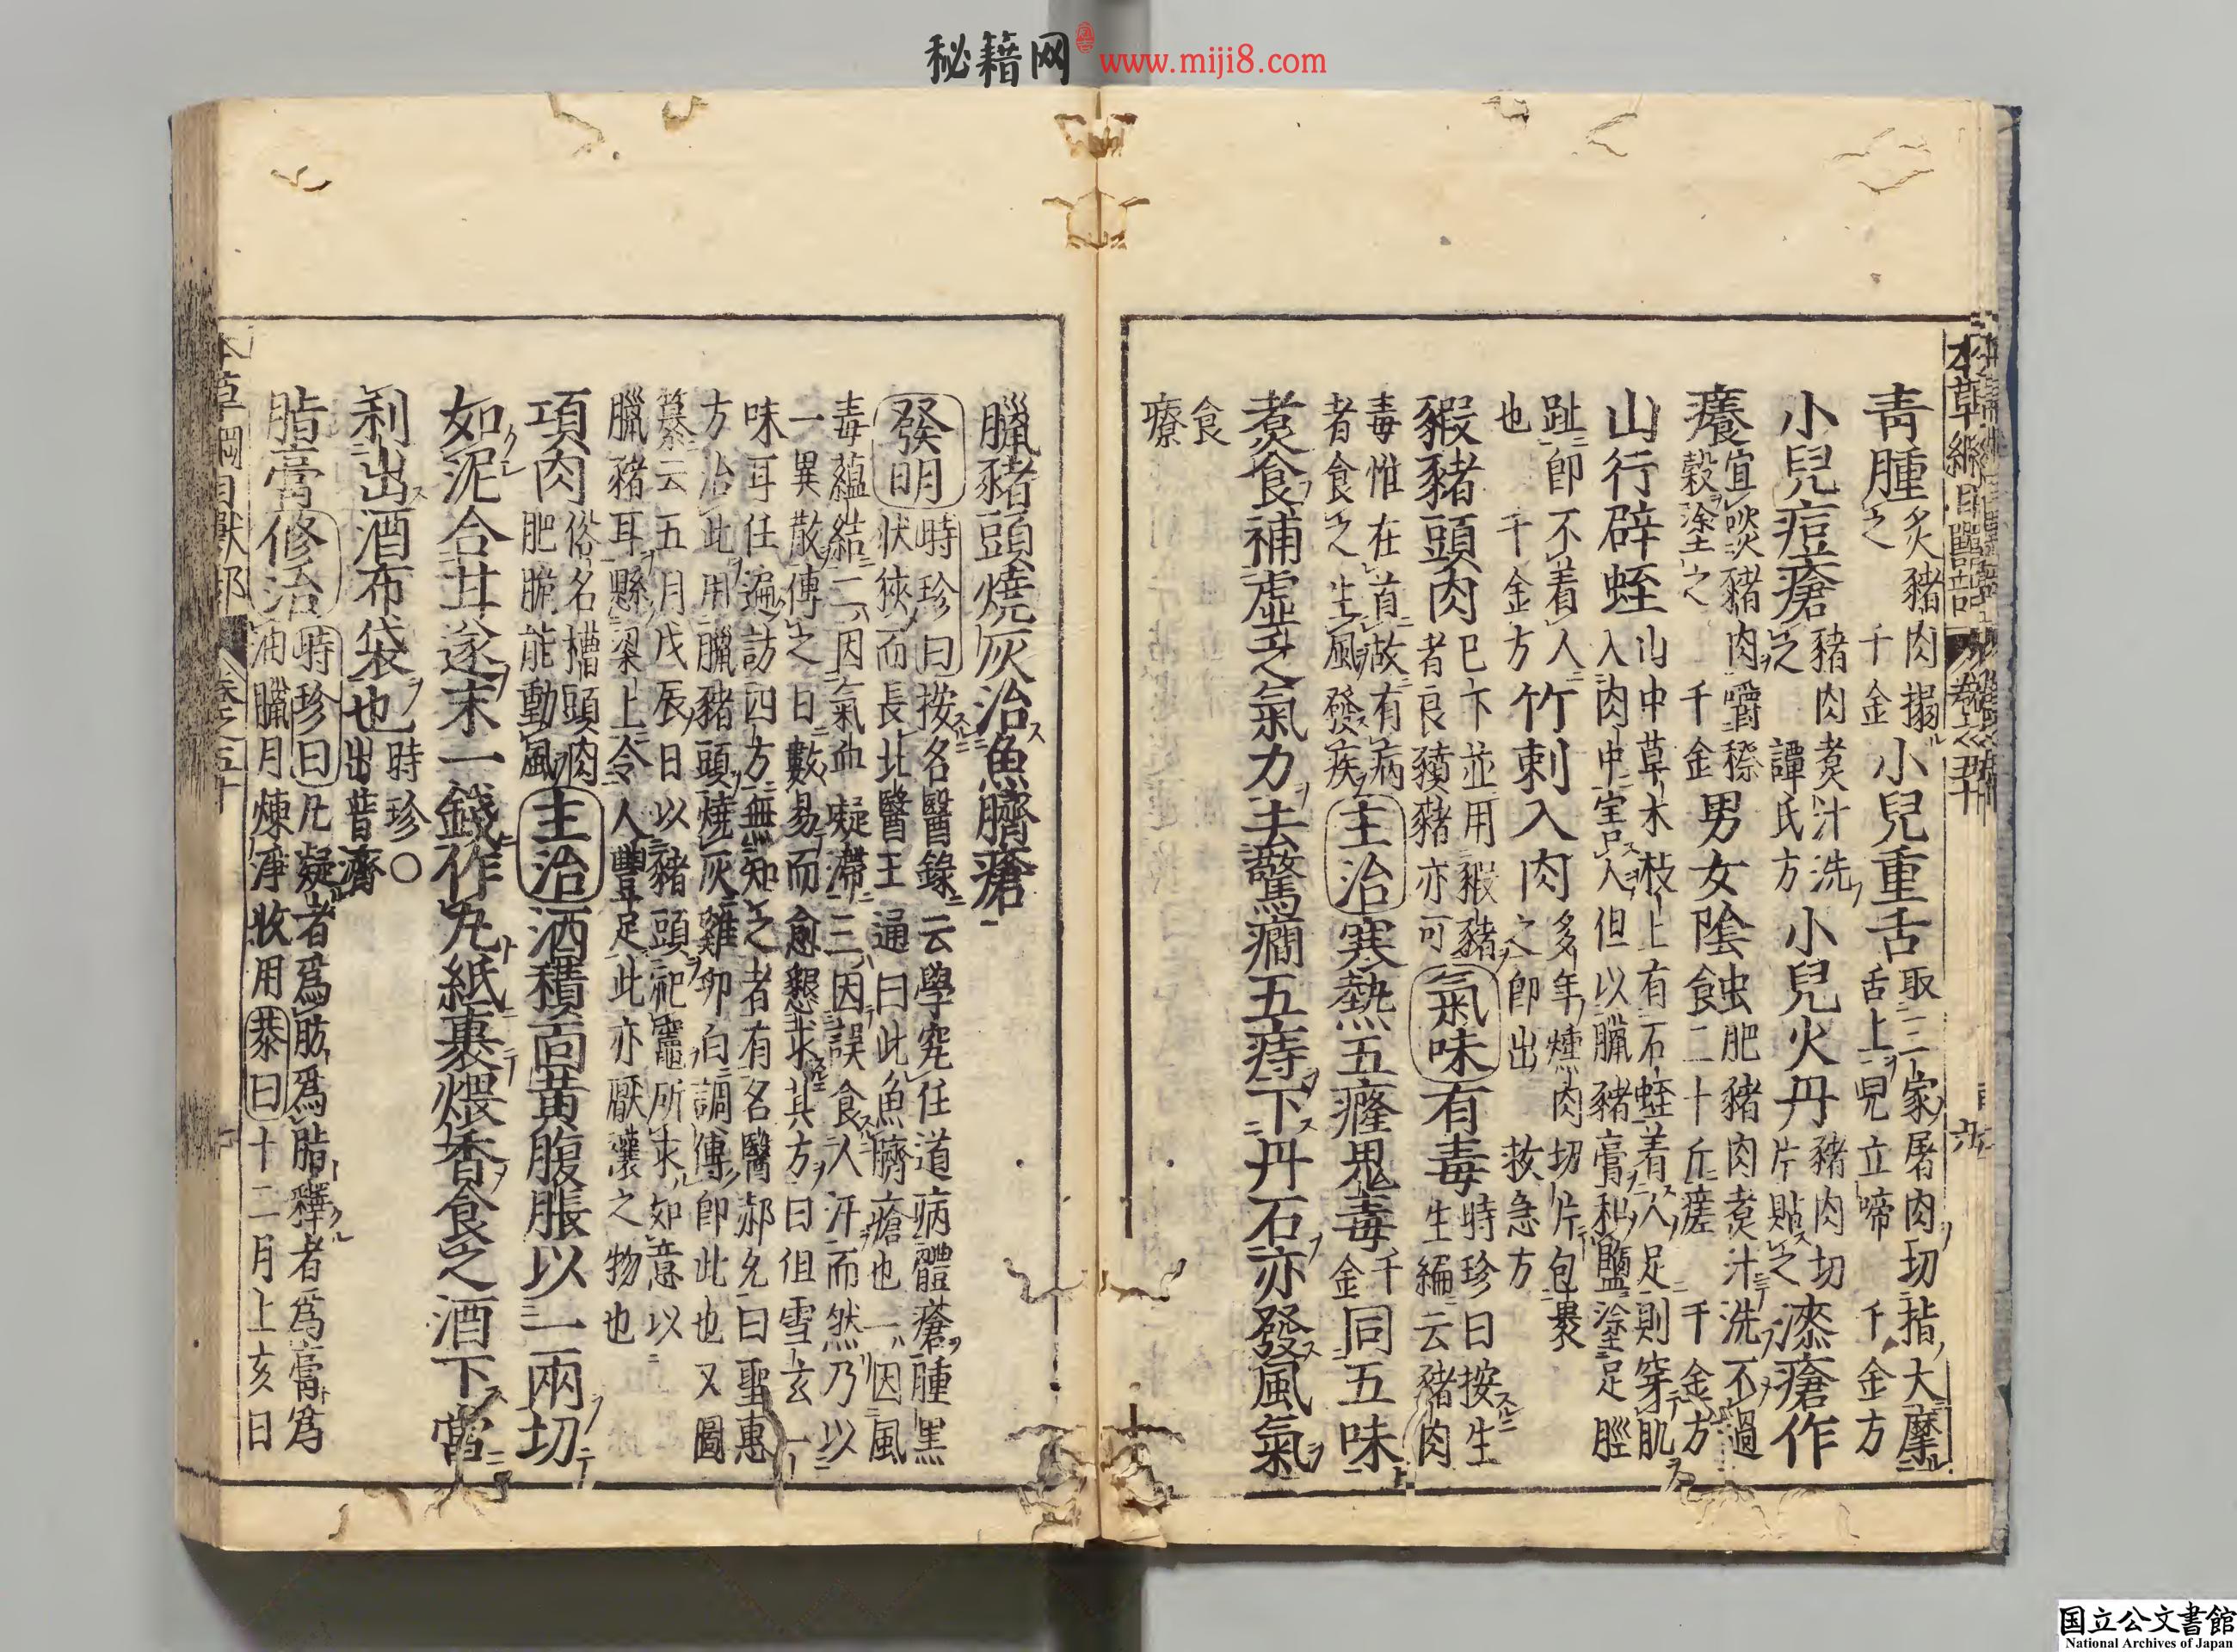 秘籍网 www.miji8.com
青腫 炙豬肉搨之 千金 小兒重舌 取三家屠肉切指大摩舌上兒立啼 千金方
小兒痘瘡 豬肉煮汁洗之 譚氏方 小兒火丹 豬肉切片貼之 漆瘡作
癢 宜啖豬肉嚼穄穀塗之 千金 男女陰蝕 肥豬肉煮汁洗不過二十斤瘥 千金方
山行辟蛭 山中草木枝上有石蛭着人足則穿肌入肉中害人但以臘豬膏和鹽塗足脛
趾即不着人也 千金方 竹刺入肉 多年燻肉切片包裹之即出 救急方
豭豬頭肉 已下並用豭豬者良豶豬亦可 氣味 有毒 時珍曰按生生編云豬肉
毒惟在首故有病者食之生風發疾 主治 寒熱五癃鬼毒 千金 同五味
煮食補虛乏氣力去驚癇五痔下丹石亦發風氣
食療
臘豬頭燒灰治魚臍瘡
發明 時珍曰按名醫錄云學究任道病體瘡腫黑
狀狹而長北醫王通曰此魚臍瘡也一因風
毒蘊結二因氣血凝滯三因誤食人汗而然乃以
一異散傅之日數易而愈懇求其方曰但雪玄一
味耳任遍訪四方無知之者有名醫郝允曰聖惠
方治此用臘豬頭燒灰雞卵白調傅即此也又圖
纂云五月戊辰日以豬頭祀竈所求如意以
臘豬耳懸梁上令人豐足此亦厭禳之物也
項肉 俗名槽頭肉肥脆能動風 主治 酒積面黃腹脹以一兩切
如泥合甘遂末一錢作丸紙裹煨香食之酒下當
利出酒布袋也 時珍○出普濟
脂膏 修治 時珍曰凡凝者爲肪爲脂釋者爲膏爲
油臘月煉淨收用 恭曰 十二月上亥日
国立公文書館
National Archives of Japan